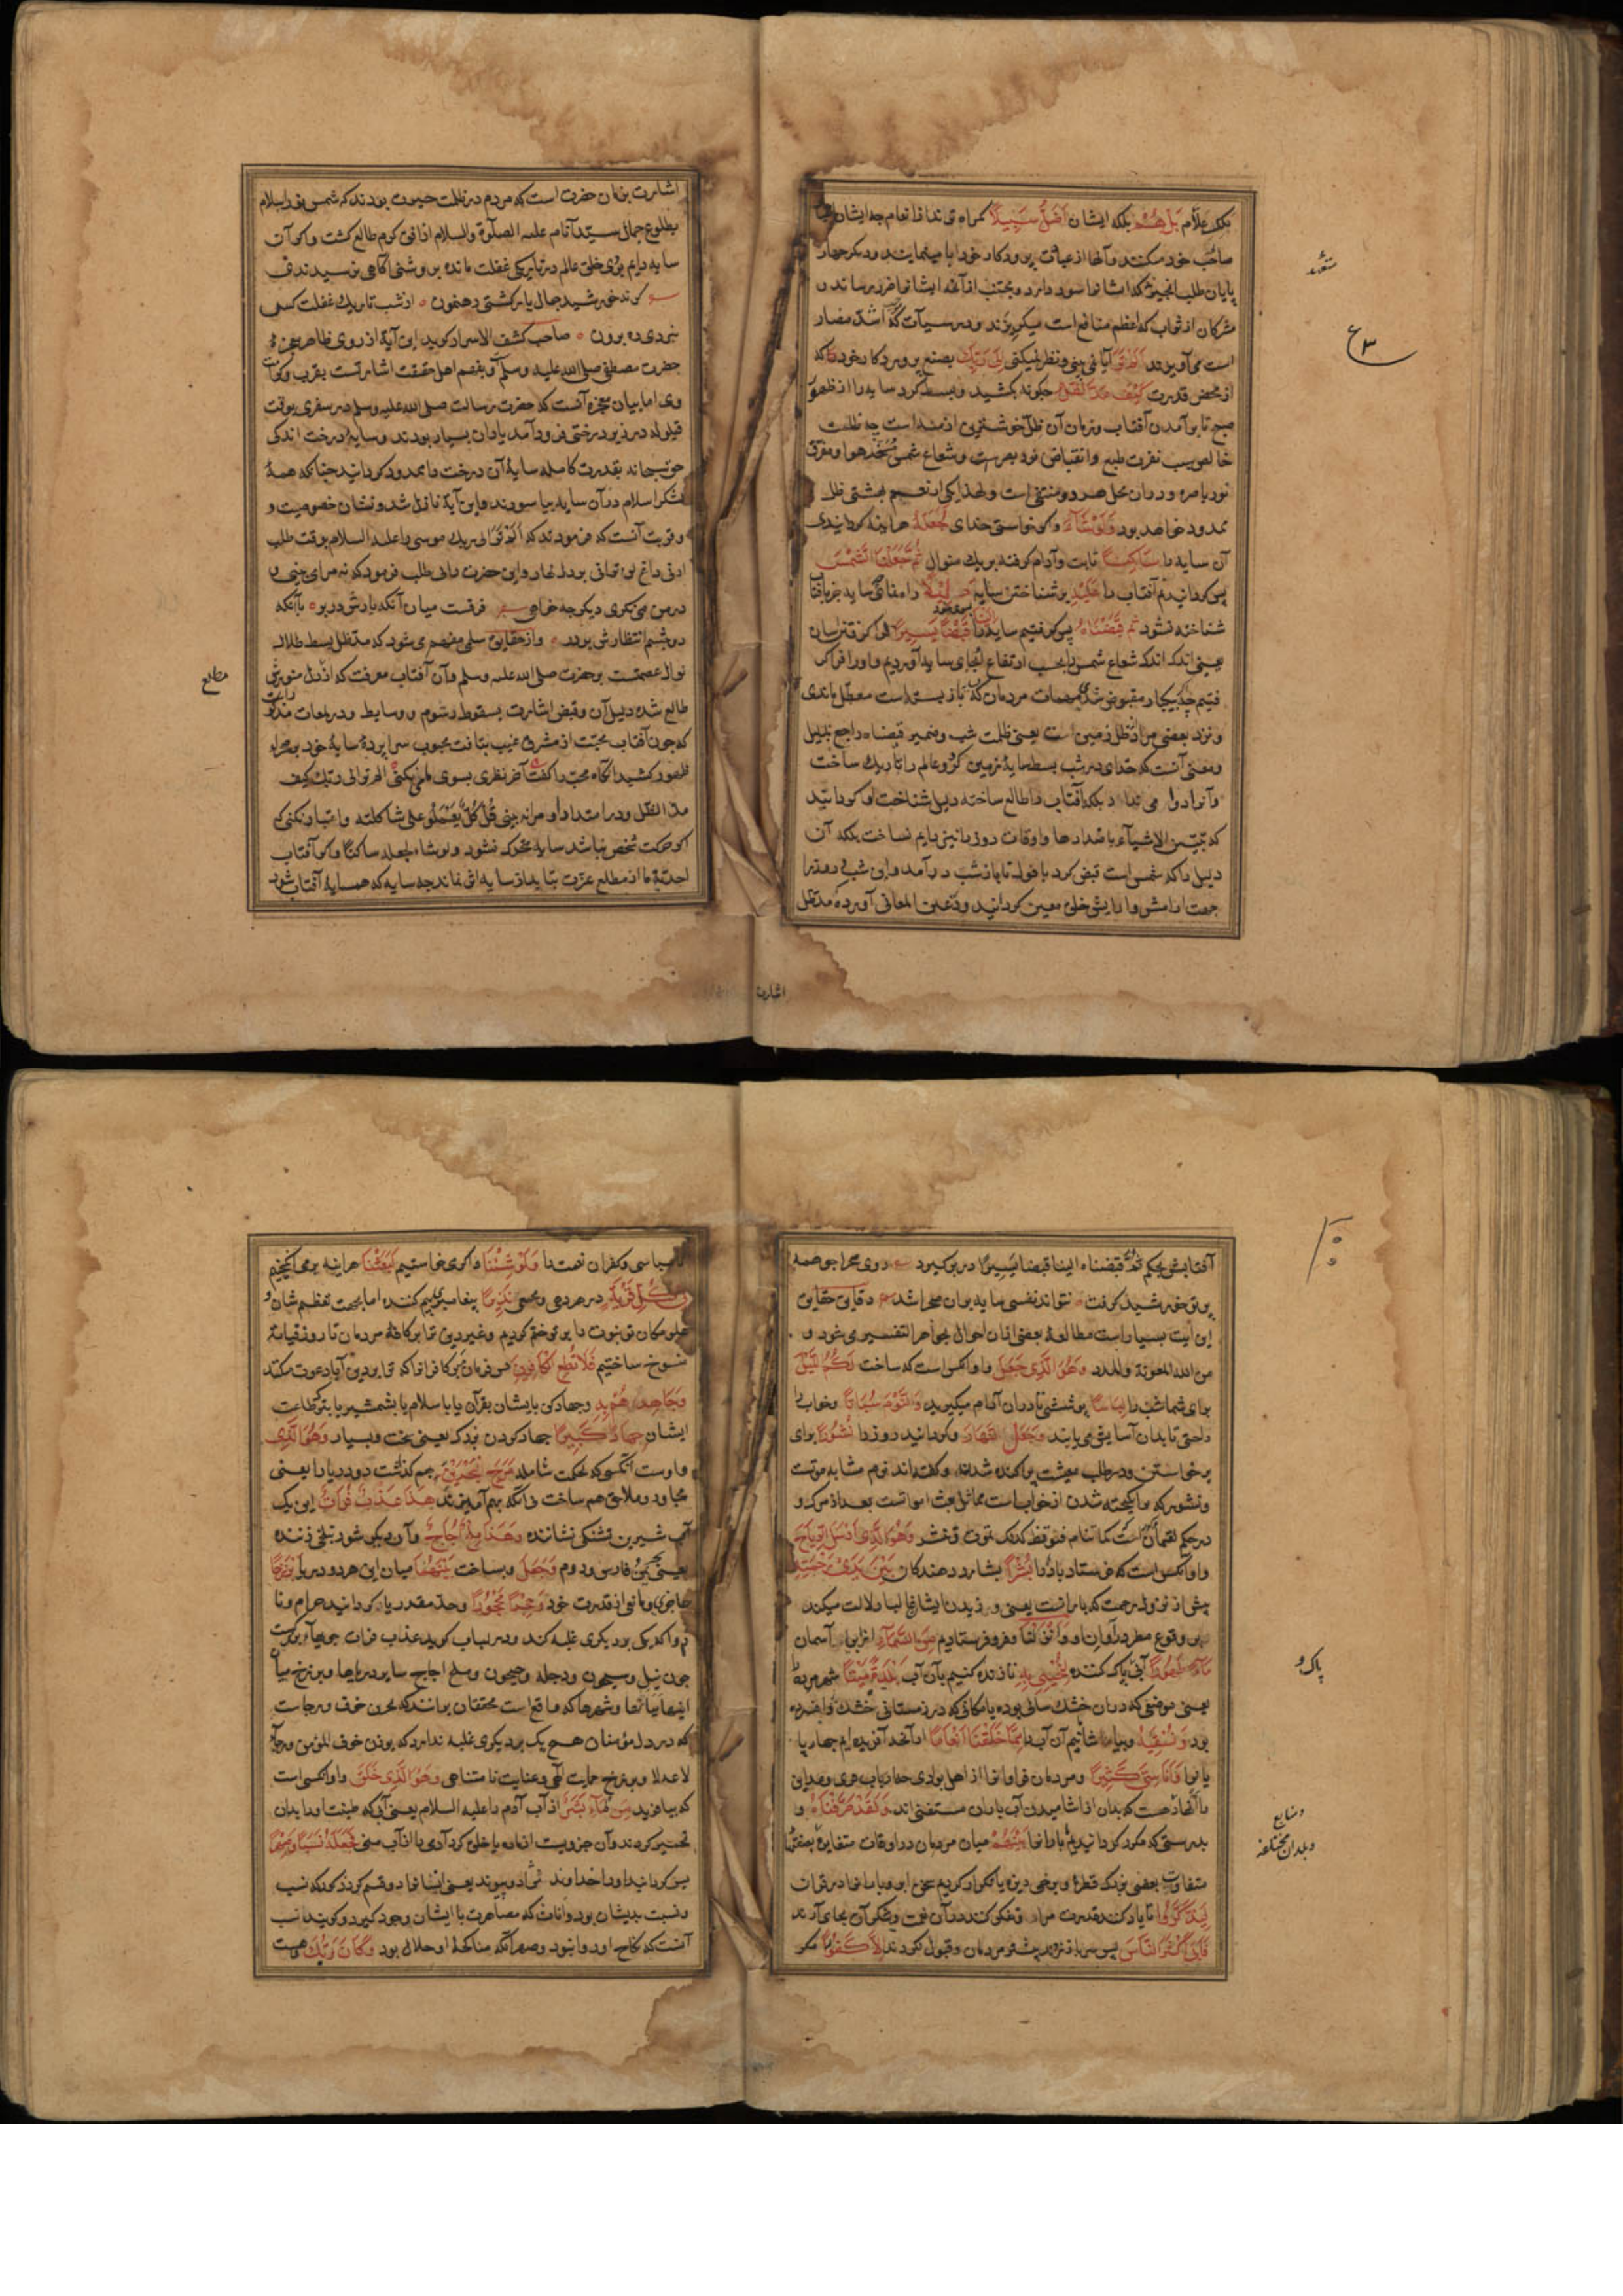 بل هم بلکه ایشان اضل سبیلا کمراه تر
صاحب خود میکنند و آنها از عبادت پروردکار خود ابا مینمایند و دیکر چهار
پایان طلب
مشرکان از ثواب که اعظم منافع است میکریزند و در سیآت که اشد مضار
است می آویزند الم تر آیا نمی بینی و نظر نمیکنی الی ربک بصنع پروردکار خود که
از محض قدرت کیف مد الظل چکونه بکشید و بسط کرد سایه را از ظهور
صبح تا بر آمدن آفتاب و زمان آن ظل خوشترین ازمنه است چه ظلمت
خالص سبب نفرت طبع و انقباض نور بصرست و شعاع شمس مسخن هوا و مفرق
نور باصره و در آن محل هر دو منتفی است و لهذا یکی از نعیم بهشتی ظل
ممدود خواهد بود ولو شاء و اکر خواستی خدای لجعله هر اینه کردانیدی
آن سایه را ساکنا ثابت و آرام کرفته بر یک منوال ثم جعلنا الشمس
پس کردانیدیم آفتاب را علیه بر شناختن سایه دلیلا
شناخته نشود ثم قبضناه پس کرفتیم سایه را قبضا یسیرا
یعنی اندک اندک شعاع شمس را بحسب ارتفاع بجای سایه آوردیم
و نزد بعضی مراد ظل زمین است یعنی ظلمت شب و ضمیر قبضناه راجع بدلیل
و معنی آنست که خدای در شب بسط سایهٔ زمین کرد و عالم را تاریک ساخت
بلکه آفتاب را طالع ساخته دلیل شناخت او کردانید
که تتبین الاشیاء باضدادها و اوقات روز را نیز دایم نساخت بلکه آن
دلیل را که شمس است قبض کرد
جهت آرامش و آسایش خلق معین کردانید و در عین المعانی آورده که مد ظل
متعبد
ع ۳
اشارت
اشارت بزمان حضرت است که مردم در ظلمت حیرت بودند که شمس نور اسلام
بطلوع جمال سید انام علیه الصلوة والسلام از افق کرم طالع کشت و اکر آن
سایه دایم بودی خلق عالم در تاریکی غفلت مانده بروشنی آکاهی نرسیدندی
کرنه خورشید جمال یار کشتی رهنمون • از شب تاریک غفلت کسی
نبردی ره برون • صاحب کشف الاسرار کوید این آیة از روی ظاهر معجزهٔ
حضرت مصطفی صلی الله علیه وسلم و بفهم اهل حقیقت اشارتست بقرب و کرامت
وی اما بیان معجزه آنست که حضرت رسالت صلی الله علیه وسلم در سفری بوقت
قیلوله در زیر درختی فرود آمد یاران بسیار بودند و سایهٔ درخت اندکی
حق سبحانه بقدرت کامله سایهٔ آن درخت را ممدود کردانید چنانکه همهٔ
لشکر اسلام در آن سایه بیاسودند و این آیة نازل شد و نشان خصوصیت و
و قربت آنست که فرمودند که الم تر الی ربک موسی را علیه السلام بوقت طلب
ارنی داغ لن ترانی بر دل نهاد و این حضرت را بی طلب فرمود که نه مرا می بینی و
در من می نکری دیکر چه خواهی فرقست میان آنکه یارش در بر • با آنکه
دو چشم انتظارش بر در • و از حقایق سلمی مفهوم می شود که مد ظل بسط ظلال
نوال عصمتست بر حضرت صلی الله علیه وسلم و آن آفتاب معرفت که از دل منورش
طالع شده دلیل آن و قبض اشارت بسقوط رسوم و وسایط و در لمعات مذکور
که چون آفتاب محبت از مشرق غیب بتافت محبوب سراپردهٔ سایهٔ خود بصحراء
ظهور کشید آنکاه محب را کفت آخر نظری بسوی ما نمی کنی الم تر الی ربک کیف
مد الظل و در امتداد او مرا نه بینی قل کل یعمل علی شاکلته و اعتبار نکنی که
اکر حرکت شخص نباشد سایه متحرک نشود ولو شاء لجعله ساکنا و اکر آفتاب
احدیت ما از مطلع عزت بتابد از سایه اثر نماند چه سایه که همسایهٔ آفتاب شود
مطلع
آفتابش بحکم ثم قبضناه الینا قبضا یسیرا در بر کیرد روی صحرا چو همه
پرتو خورشید کرفت نتواند نفسی سایه بران صحرا شد دقایق حقایق
این آیت بسیار است مطالعهٔ بعضی ازان احوال بجواهر التفسیر می شود و
من الله المعونة والمدد وهو الذی جعل و او آنکس است که ساخت لکم اللیل
برای شما شب را لباسا پوششی تا در آن آرام میکیرید والنوم سباتا و خواب را
راحتی تا بدان آسایش می یابید وجعل النهار و کردانید روز را نشورا برای
برخاستن و در طلب معیشت پراکنده شدن و کفته اند نوم مشابه موتست
و نشور که برانکیخته شدن از خوابست مماثل بعث اموات است بعد از مرک و
در حکم لقمان است کما تنام فتوقظ کذلک تموت و تنشر وهو الذی ارسل الریاح
و او آنکس است که فرستاد بادها را بشرا بشارت دهندکان بین یدی رحمته
پیش از نزول رحمت که بارانست یعنی وزیدن ایشان غالبا دلالت میکند
بر وقوع مطر در آوان او وانزلنا و فرو فرستادیم من السماء از ابر یا آسمان
ماء طهورا آبی پاک کننده لنحیی به تا زنده کنیم بآن آب بلدة میتا شهر مرده
یعنی موضعی که در آن خشک سالی بوده یا مکانی که در زمستانی خشک و افسرده
بود ونسقیه و بیاشامانیم آن آب را مما خلقنا انعاما از آنچه آفریده ایم چهارپا
یانرا واناسی کثیرا و مردمان فراوانرا
ولقد صرفناه و
بدرستی که مکرر کردانیدیم بارانرا بینهم میان مردمان در اوقات متغایره بصفتهای
متفاوت بعضی بزرک قطره و برخی ریزه
لیذکروا تا یاد کنند قدرت مرا و تفکر کنند در آن نعمت و شکر آن بجای آرند
فابی اکثر الناس پس سر باز زدند بیشتر مردمان و قبول نکردند الا کفورا مکر
پاک و
بلدان مختلفه
ناسپاسی و کفران نعمت را ولو شئنا و اکر می خواستیم لبعثنا هر اینه بر می انکیختیم
فی کل قریة در هر دهی و مجمعی نذیرا پیغامبری بیم کننده اما بجهت تعظیم شان و
علو مکان تو نبوت را بر تو ختم کردیم و غیر دین ترا بر کافهٔ مردمان تا روز قیامت
منسوخ ساختیم فلا تطع الکافرین فرمان مبر کافرانرا که ترا بدین آبا دعوت میکنند
وجاهدهم به و جهاد کن با ایشان بقرآن یا باسلام یا بشمشیر یا بترک طاعت
ایشان جهادا کبیرا جهاد کردن بزرک یعنی سخت و بسیار وهو الذی
و اوست آنکسی که بحکمت شامله مرج البحرین بهم کذاشت دو دریا را یعنی
مجاور و ملاصق هم ساخت بی آنکه بهم آمیزند هذا عذب فرات این یک
آب شیرین تشنکی نشاننده وهذا ملح اجاج و آن دیکر شور تلخی زننده
یعنی بحرین فارس و روم وجعل و بساخت بینهما میان این هر دو دریا برزخا
حاجزی و مانعی از قدرت خود وحجرا محجورا
یکی بر دیکری غلبه کند و در لباب کوید عذب فرات جویهاء بزرکست
چون نیل و سیحون و دجله و جیحون و ملح اجاج سایر دریاها و برزخ میان
اینها بیابانها و شهرها که مانع است محققان برانند که بحرین خوف و رجاست
که در دل مؤمنان هیچ یک بر دیکری غلبه ندارد که لو وزن خوف المؤمن ورجاؤه
لاعتدلا و برزخ حمایت الهی و عنایت نامتناهی وهو الذی خلق و او آنکسی است
که بیافرید من الماء بشرا از آب آدم را علیه السلام یعنی آبی که طینت او را بدان
تخمیر کردند و آن جزویست از ماده یا خلق کرد آدمی را از آب منی فجعله نسبا وصهرا
پس کردانید او را خداوند نژاد و پیوند یعنی ایشانرا دو قسم کرد ذکور که نسب
و نسبت بدیشان بود و اناث که مصاهرت با ایشان وجود کیرد و کویند نسب
آنست که نکاح او روا نبود و صهر آنکه مناکحهٔ او حلال بود وکان ربک و هست